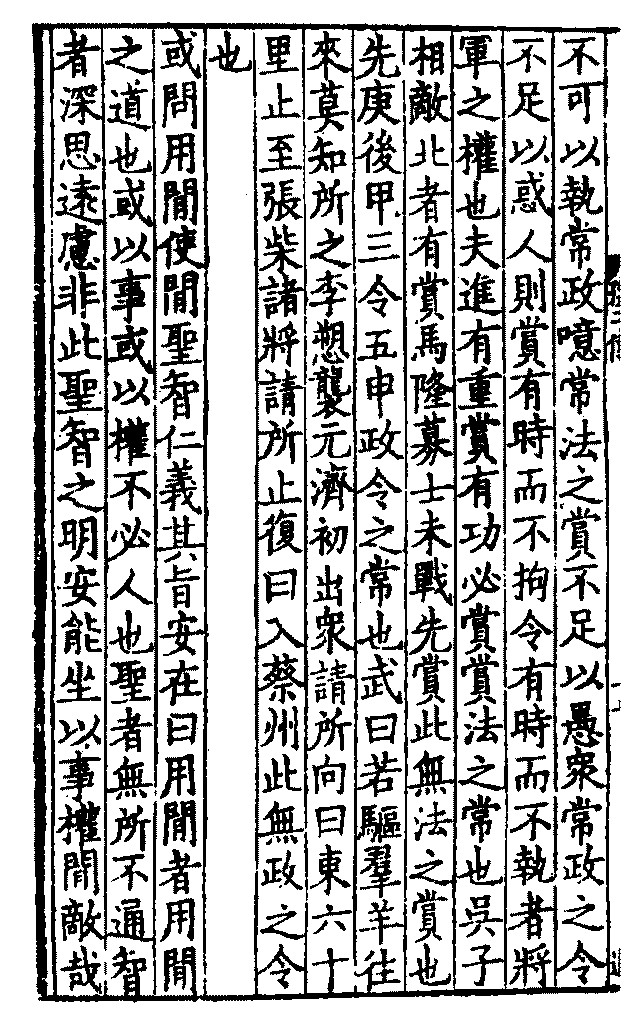 不可以執常政噫常法之賞不足以愚衆常政之令
不足以惑人則賞有時而不拘令有時而不執者將
軍之權也夫進有重賞有功必賞賞法之常也吳子
相敵北者有賞馬隆募士未戰先賞此無法之賞也
先庚後甲三令五申政令之常也武曰若驅羣羊往
來莫知所之李愬襲元濟初出衆請所向曰東六十
里止至張柴諸將請所止復曰入蔡州此無政之令
也
或問用間使間聖智仁義其旨安在曰用間者用間
之道也或以事或以權不必人也聖者無所不通智
者深思遠慮非此聖智之明安能坐以事權間敵哉